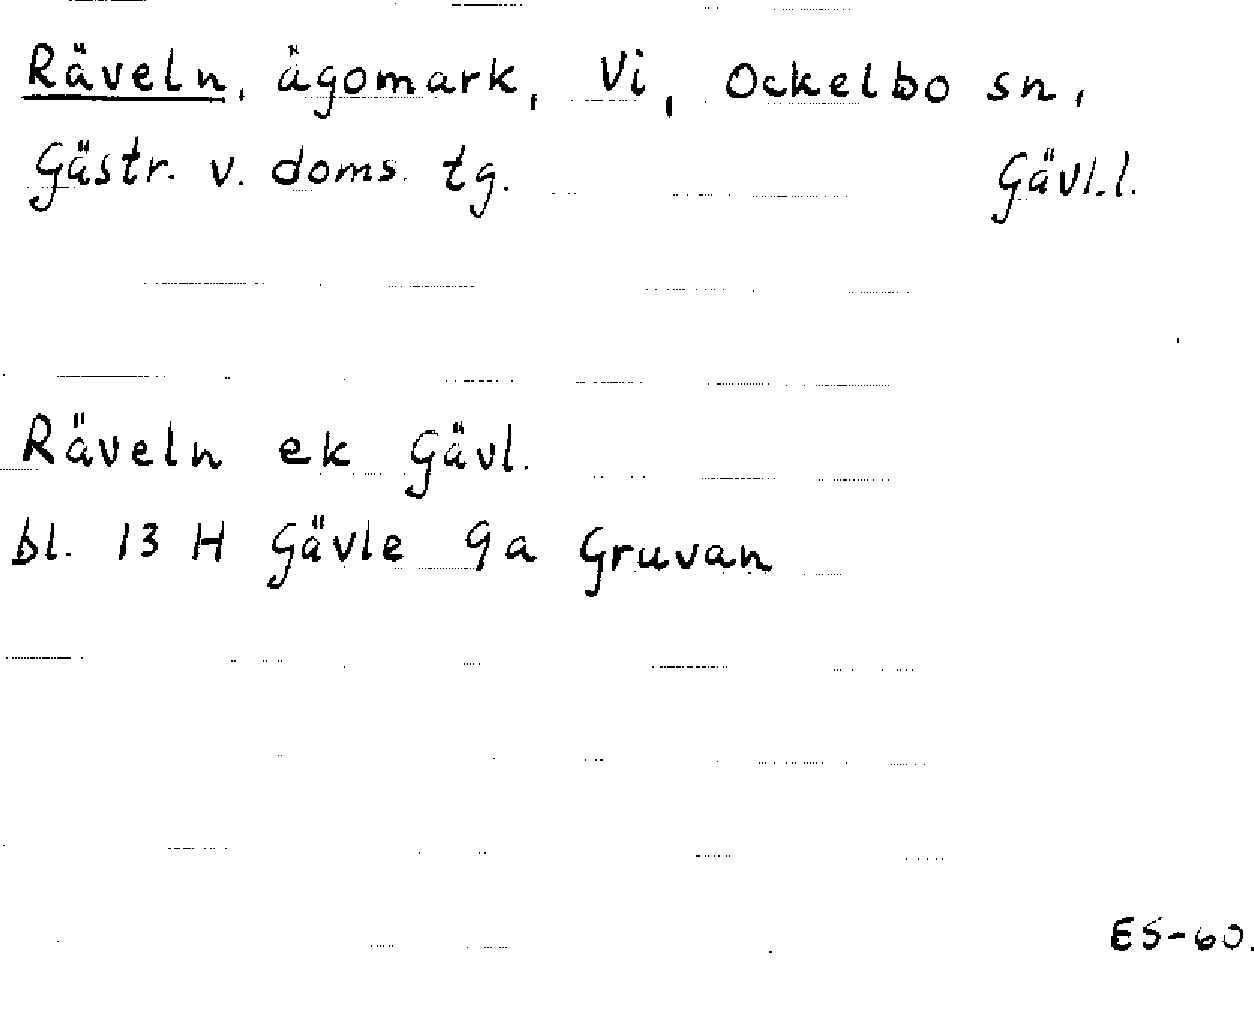 Räveln, ägomark, Vi, Ockelbo sn,
Gästr. v. doms. tg. Gävl.l.
Räveln ek Gävl.
bl. 13 H Gävle 9a Gruvan
ES-60.